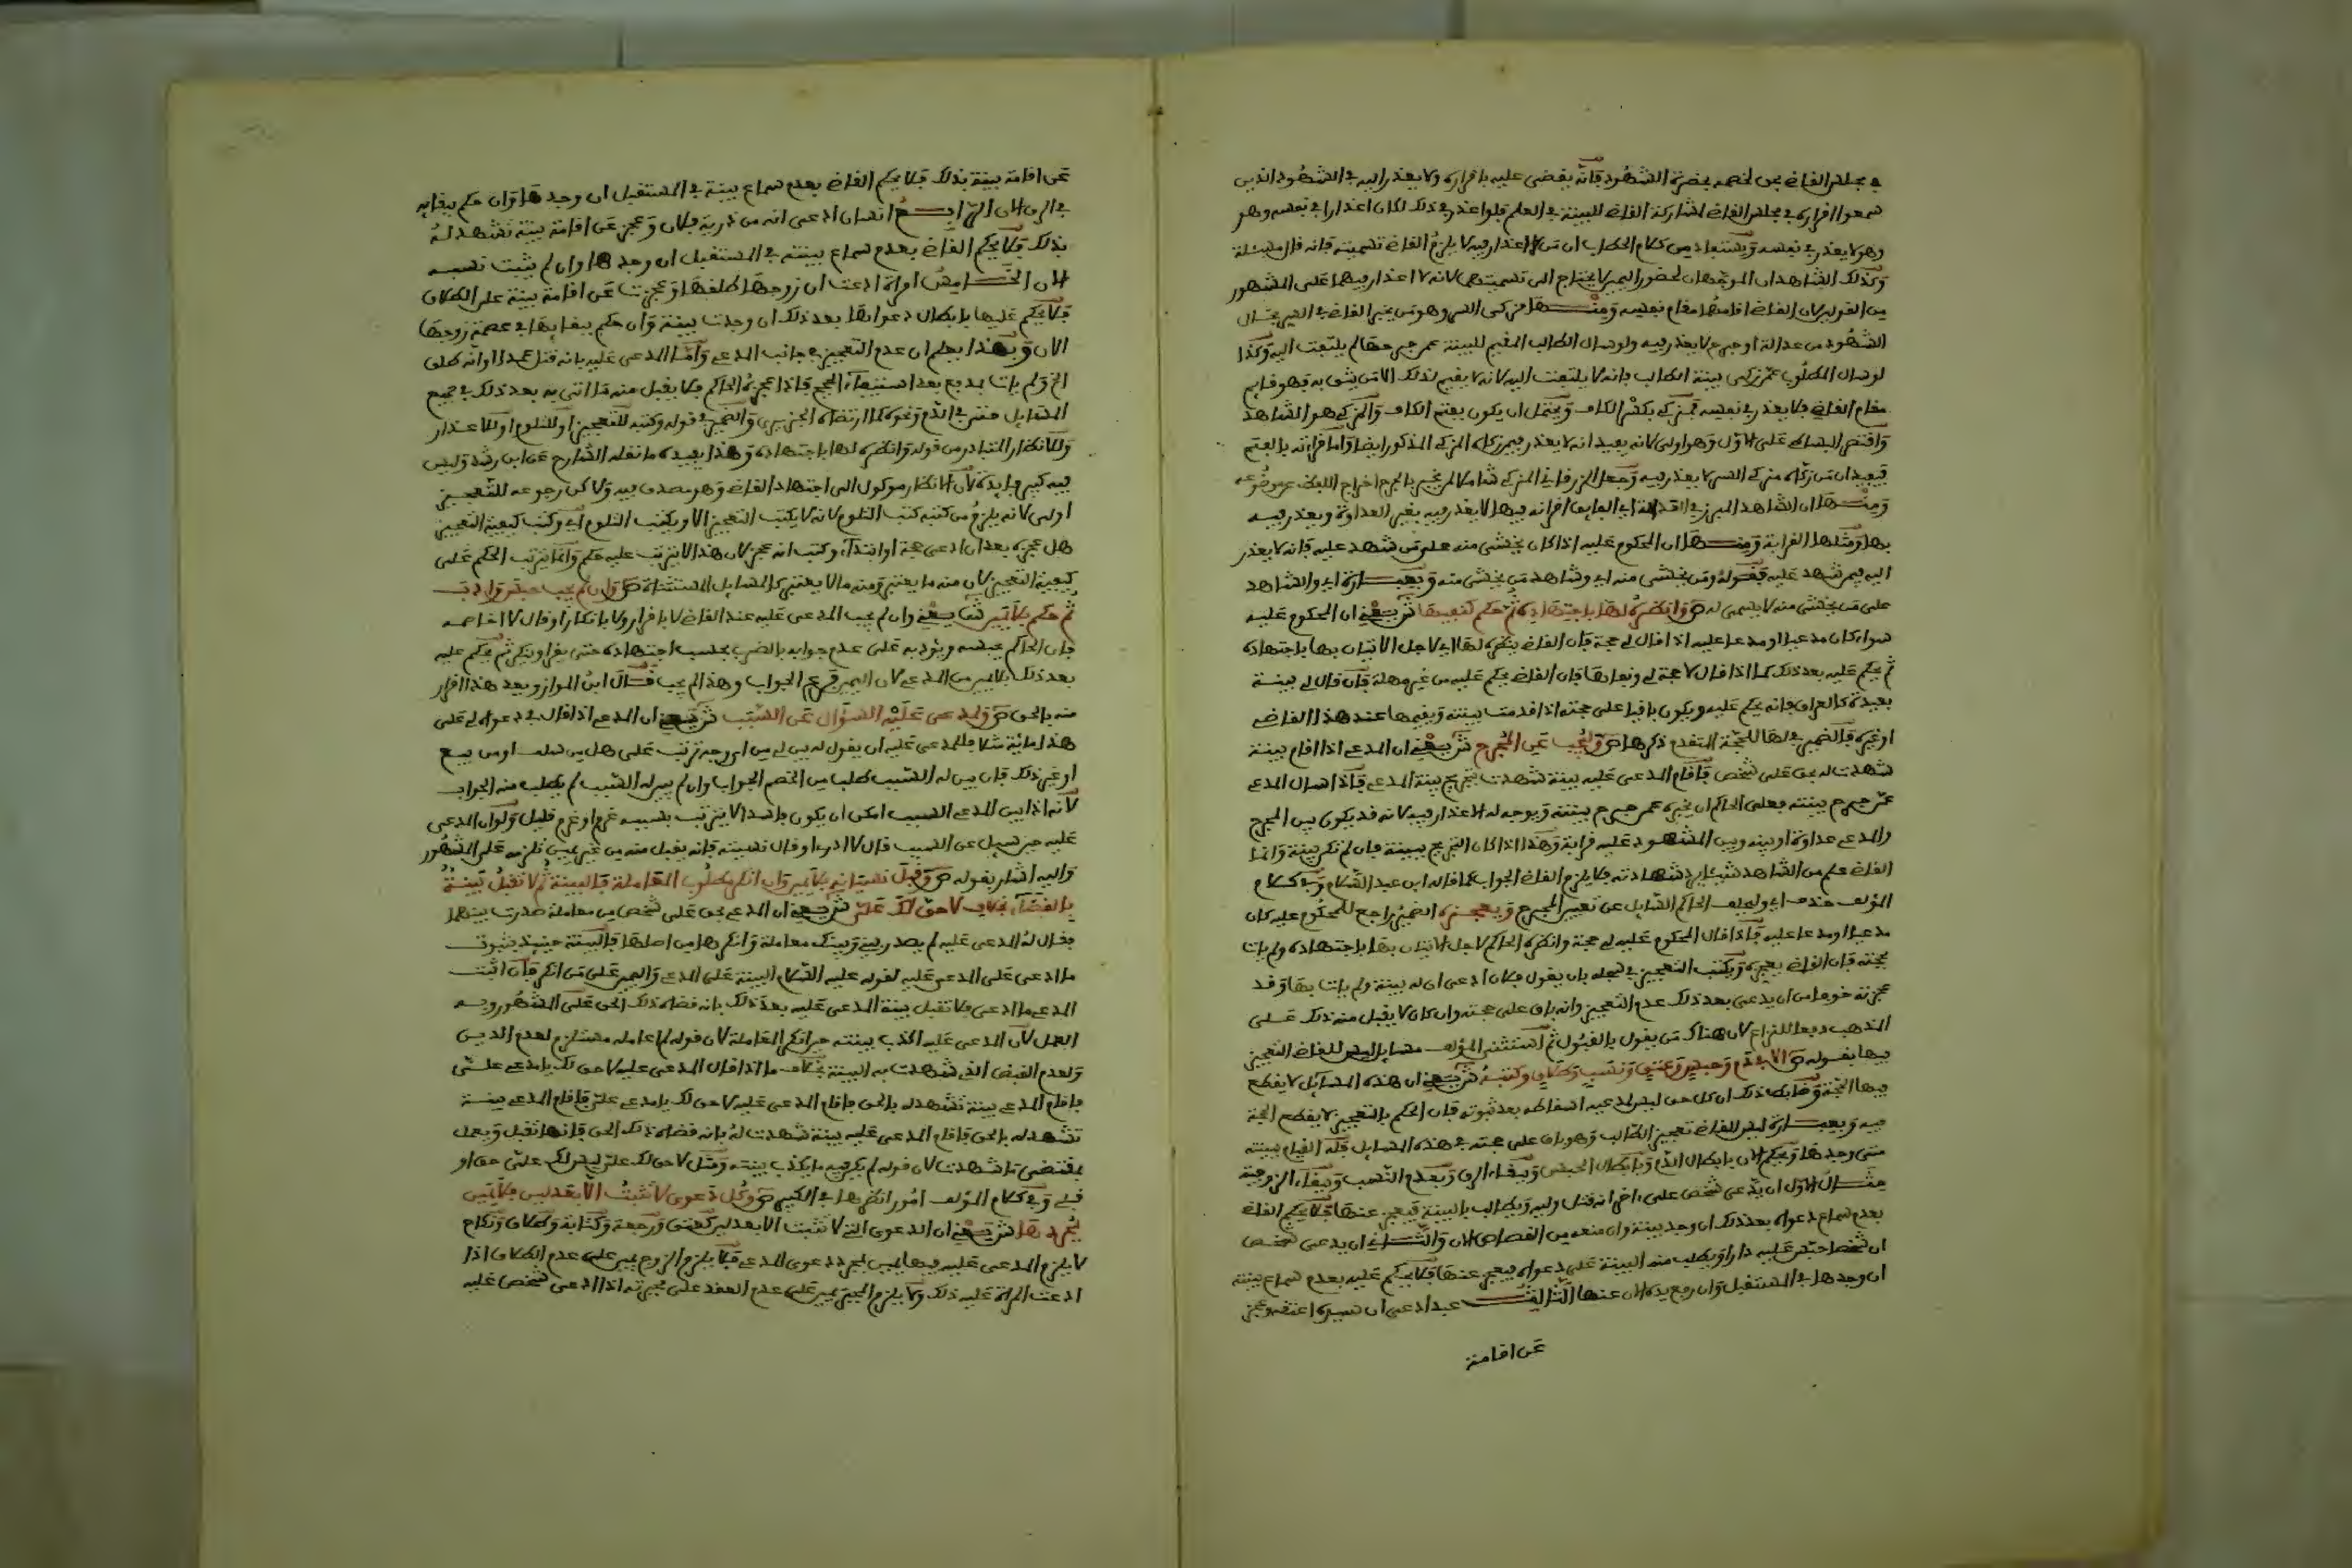 في مجلس القاضي بحق لخصمه بحضرة الشهود فانه يقضى عليه باقراره ولا يعذر اليه في الشهود الذين
سمعوا اقراره في مجلس القاضي لمشاركة القاضي للبينة في العلم فلو اعذر في ذلك لكان اعذارا في نفسه وهو
وهو لا يعذر في نفسه ويستفاد من كلام الحطاب ان من لا اعذار فيه لا يلزم القاضي تسميته فانه قال مسئلة
وكذلك الشاهدان الموجهان لحضور اليمين لا يحتاج الى تسميتهما لانه لا اعذار فيهما على المشهور
من القولين لان القاضي اقامهما مقام نفسه ومنها مزكى السر وهو من يخبر القاضي في السر بحال
الشهود من عدالة او جرح لا يعذر فيه ولو سال الطالب المقيم للبينة عمن جرحها لم يلتفت اليه وكذا
لو سال المطلوب عمن زكى بينة الطالب فانه لا يلتفت اليه لانه لا يقيم لذلك الا من يثق به فهو قايم
مقام القاضي فلا يعذر في نفسه فمزكى بكسر الكاف ويحتمل ان يكون بفتح الكاف والمزكى هو الشاهد
واقتصر البساطي على الاول وهو اولى لانه يفيد انه لا يعذر فيمن زكاه المزكى المذكور ايضا واما قراءته بالفتح
فيفيد ان من زكاه مزكى السر لا يعذر فيه وجعل الزرقاني المزكى شاملا لمن يخبر بالجرح اخراج اللفظ عن موضوعه
ومنها ان الشاهد المبرز في العدالة اي الفايق اقرانه فيها لا يعذر فيه بغير العداوة ويعذر فيه
بها ومثلها القرابة ومنها ان المحكوم عليه اذا كان يخشى منه على من شهد عليه فانه لا يعذر
اليه فيمن شهد عليه فقوله ومن يخشى منه اي وشاهد من يخشى منه وبعبارة اي والشاهد
على من يخشى منه لا يسمى له ص وانظره لها باجتهاده ثم حكم كنفيها ش يعني ان المحكوم عليه
سواء كان مدعيا او مدعا عليه اذا قال لي حجة فان القاضي ينظره لها اي لاجل الاتيان بها باجتهاده
ثم يحكم عليه بعد ذلك كما اذا قال لا حجة لي ونفاها فان القاضي يحكم عليه من غير مهلة فان قال لي بينة
بعيدة كالعراق فانه يحكم عليه ويكون باقيا على حجته اذا قدمت بينته ويقيمها عند هذا القاضي
او غيره فالضمير في لها للحجة المتقدم ذكرها ص وليجب عن المجرح ش يعني ان المدعي اذا اقام بينة
شهدت له بحق على شخص فاقام المدعى عليه بينة شهدت بتجريح بينة المدعي فاذا سال المدعي
عمن جرح بينته فعلى الحاكم ان يخبره عمن جرح بينته ويوجه له الاعذار فيه لانه قد يكون بين المجرح
والمدعي عداوة او بينه وبين المشهود عليه قرابة وهذا اذا كان التجريح ببينة فان لم تكن بينة وانما
القاضي علم من الشاهد شيئا يرد شهادته فلا يلزم القاضي الجواب كما قاله ابن عبد السلام وفي كلام
المؤلف حذف اي وليجب الحاكم السائل عن تعيين المجرح ويعجزه الضمير راجع للمحكوم عليه كان
مدعيا او مدعا عليه فاذا قال المحكوم عليه لي حجة وانظره الحاكم لاجل الاتيان بها باجتهاده ولم يات
بحجته فان القاضي يعجزه ويكتب التعجيز في سجله بان يقول فلان ادعى ان له بينة ولم يات بها وقد
عجزته خوفا من ان يدعى بعد ذلك عدم التعجيز وانه باق على حجته وان كان لا يقبل منه ذلك على
المذهب دفعا للنزاع لان هناك من يقول بالقبول ثم استثنى المؤلف مسايل ليس للقاضي التعجيز
فيها بقوله ص الا في دم وحبس وعتق ونسب وطلاق وكتبه ش يعني ان هذه المسايل لا يقطع
فيها الحجة وضابط ذلك ان كل حق ليس لمدعيه اسقاطه بعد ثبوته فان الحكم بالتعجيز لا يقطع الحجة
فيه وبعبارة ليس للقاضي تعجيز الطالب وهو باق على حجته في هذه المسايل فله القيام ببينته
متى وجدها ويحكم الان بابطال الدم وبابطال الحبس وببقاء الرق وبعدم النسب وببقاء الزوجية
مثال الاول ان يدعي شخص على اخر انه قتل وليه ويطالب بالبينة فيعجز عنها فلا يحكم القاضي
بعدم سماع دعواه بعد ذلك ان وجد بينة وان منعه من القصاص الان والثاني ان يدعى شخص
ان شخصا حبس عليه دارا ويطلب منه البينة على دعواه فيعجز عنها فلا يحكم عليه بعدم سماع بينته
ان وجدها في المستقبل وان رفع يده الان عنها الثالث عبد ادعى ان سيده اعتقه وعجز
عن اقامة
عن اقامة بينة بذلك فلا يحكم القاضي بعدم سماع بينة في المستقبل ان وجدها وان حكم ببقايه
في الرق الان الرابع انسان ادعى انه من ذرية فلان وعجز عن اقامة بينة تشهد له
بذلك فلا يحكم القاضي بعدم سماع بينته في المستقبل ان وجدها وان لم يثبت نسبه
الان الخامس امراة ادعت ان زوجها طلقها وعجزت عن اقامة بينة على الطلاق
فلا يحكم عليها بابطال دعواها بعد ذلك ان وجدت بينة وان حكم ببقايها في عصمة زوجها
الان وبهذا يعلم ان عدم التعجيز في جانب المدعي واما المدعى عليه بانه قتل عمدا او انه طلق
الخ ولم يات بمدفع بعد استيفاء الحجج فاذا عجزه الحاكم فلا يقبل منه ما اتى به بعد ذلك في جميع
المسايل حتى في الدم ونحوه كما ارتضاه الجيزي والضمير في قوله وكتبه للتعجيز او للتلوم او للاعذار
وللانظار المتبادر من قوله وانظره لها باجتهاده وهذا يفيده ما نقله الشارح عن ابن رشد وليس
فيه كبير فايدة لان الانظار موكول الى اجتهاد القاضي وهو مصدق فيه ولاكن رجوعه للتعجيز
اولى لانه يلزم من كتبه كتب التلوم لانه لا يكتب التعجيز الا ويكتب التلوم اي وكتب كيفية التعجيز
هل عجزه بعد ان ادعى حجة او ابتداء وكتب انه عجز لان هذا لا يترتب عليه حكم وانما يترتب الحكم على
كيفية التعجيز لان منه ما يعتبر ومنه ما لا يعتبر كالمسايل المستثناة ص وان لم يجب حبس وادب
ثم حكم بلا يمين ش يعني وان لم يجب المدعى عليه عند القاضي لا باقرار ولا بانكار او قال لا اخاصمه
فان الحاكم يحبسه ويؤدبه على عدم جوابه بالضرب بحسب اجتهاده حتى يقر او ينكر ثم يحكم عليه
بعد ذلك بلا يمين من المدعي لان اليمين فرع الجواب وهذا لم يجب قال ابن المواز ويعد هذا اقرار
منه بالحق ص ولمدعى عليه السؤال عن السبب ش يعني ان المدعي اذا قال في دعواه لي على
هذا مائة مثلا فللمدعى عليه ان يقول له بين لي من اي وجه ترتبت على هل من سلف او من بيع
او غير ذلك فان بين له السبب طلب من الخصم الجواب وان لم يبين له السبب لم يطلب منه الجواب
لانه اذا بين المدعي السبب امكن ان يكون فاسدا لا يترتب بسببه غرم او غرم قليل ولو ان المدعى
عليه حين سيل عن السبب قال لا ادري او قال نسيته فانه يقبل منه من غير يمين تلزمه على المشهور
واليه اشار بقوله ص وقبل نسيانه بلا يمين وان انكر مطلوب المعاملة فالبينة ثم لا تقبل بينة
بالقضاء بخلاف لا حق لك علي ش يعني ان المدعي بحق على شخص من معاملة صدرت بينهما
فقال له المدعى عليه لم يصدر بيني وبينك معاملة وانكرها من اصلها فالبينة حينيذ بثبوت
ما ادعى على المدعى عليه لقوله عليه السلام البينة على المدعي واليمين على من انكر فان اثبت
المدعي ما ادعى فلا تقبل بينة المدعى عليه بعد ذلك بانه قضاه ذلك الحق على المشهور وبه
العمل لان المدعى عليه اكذب بينته حين انكر المعاملة لان قوله لم اعامله مستلزم لعدم الدين
ولعدم القبض الذي شهدت به البينة بخلاف ما اذا قال المدعى عليه لا حق لك يا مدعي علي
فاقام المدعي بينة تشهد له بالحق فاقام المدعى عليه لا حق لك يا مدعي علي فاقام المدعي بينة
تشهد له بالحق فاقام المدعى عليه بينة شهدت له بانه قضاه ذلك الحق فانها تقبل ويعمل
بمقتضى ما شهدت لان قوله لم يكن فيه ما يكذب بينته ومثل لا حق لك علي ليس لك علي حق او
قبلي وفي كلام المؤلف امور انظرها في الكبير ص وكل دعوى لا تثبت الا بعدلين فلا يمين
بمجردها ش يعني ان الدعوى التي لا تثبت الا بعدلين كعتق ورجعة وكتابة وطلاق ونكاح
لا يلزم المدعى عليه فيها يمين بمجرد دعوى المدعي فلا يلزم الزوج يمين على عدم الطلاق اذا
ادعت المراة عليه ذلك ولا يلزم المجبر يمين على عدم العقد على مجبرته اذا ادعى شخص عليه